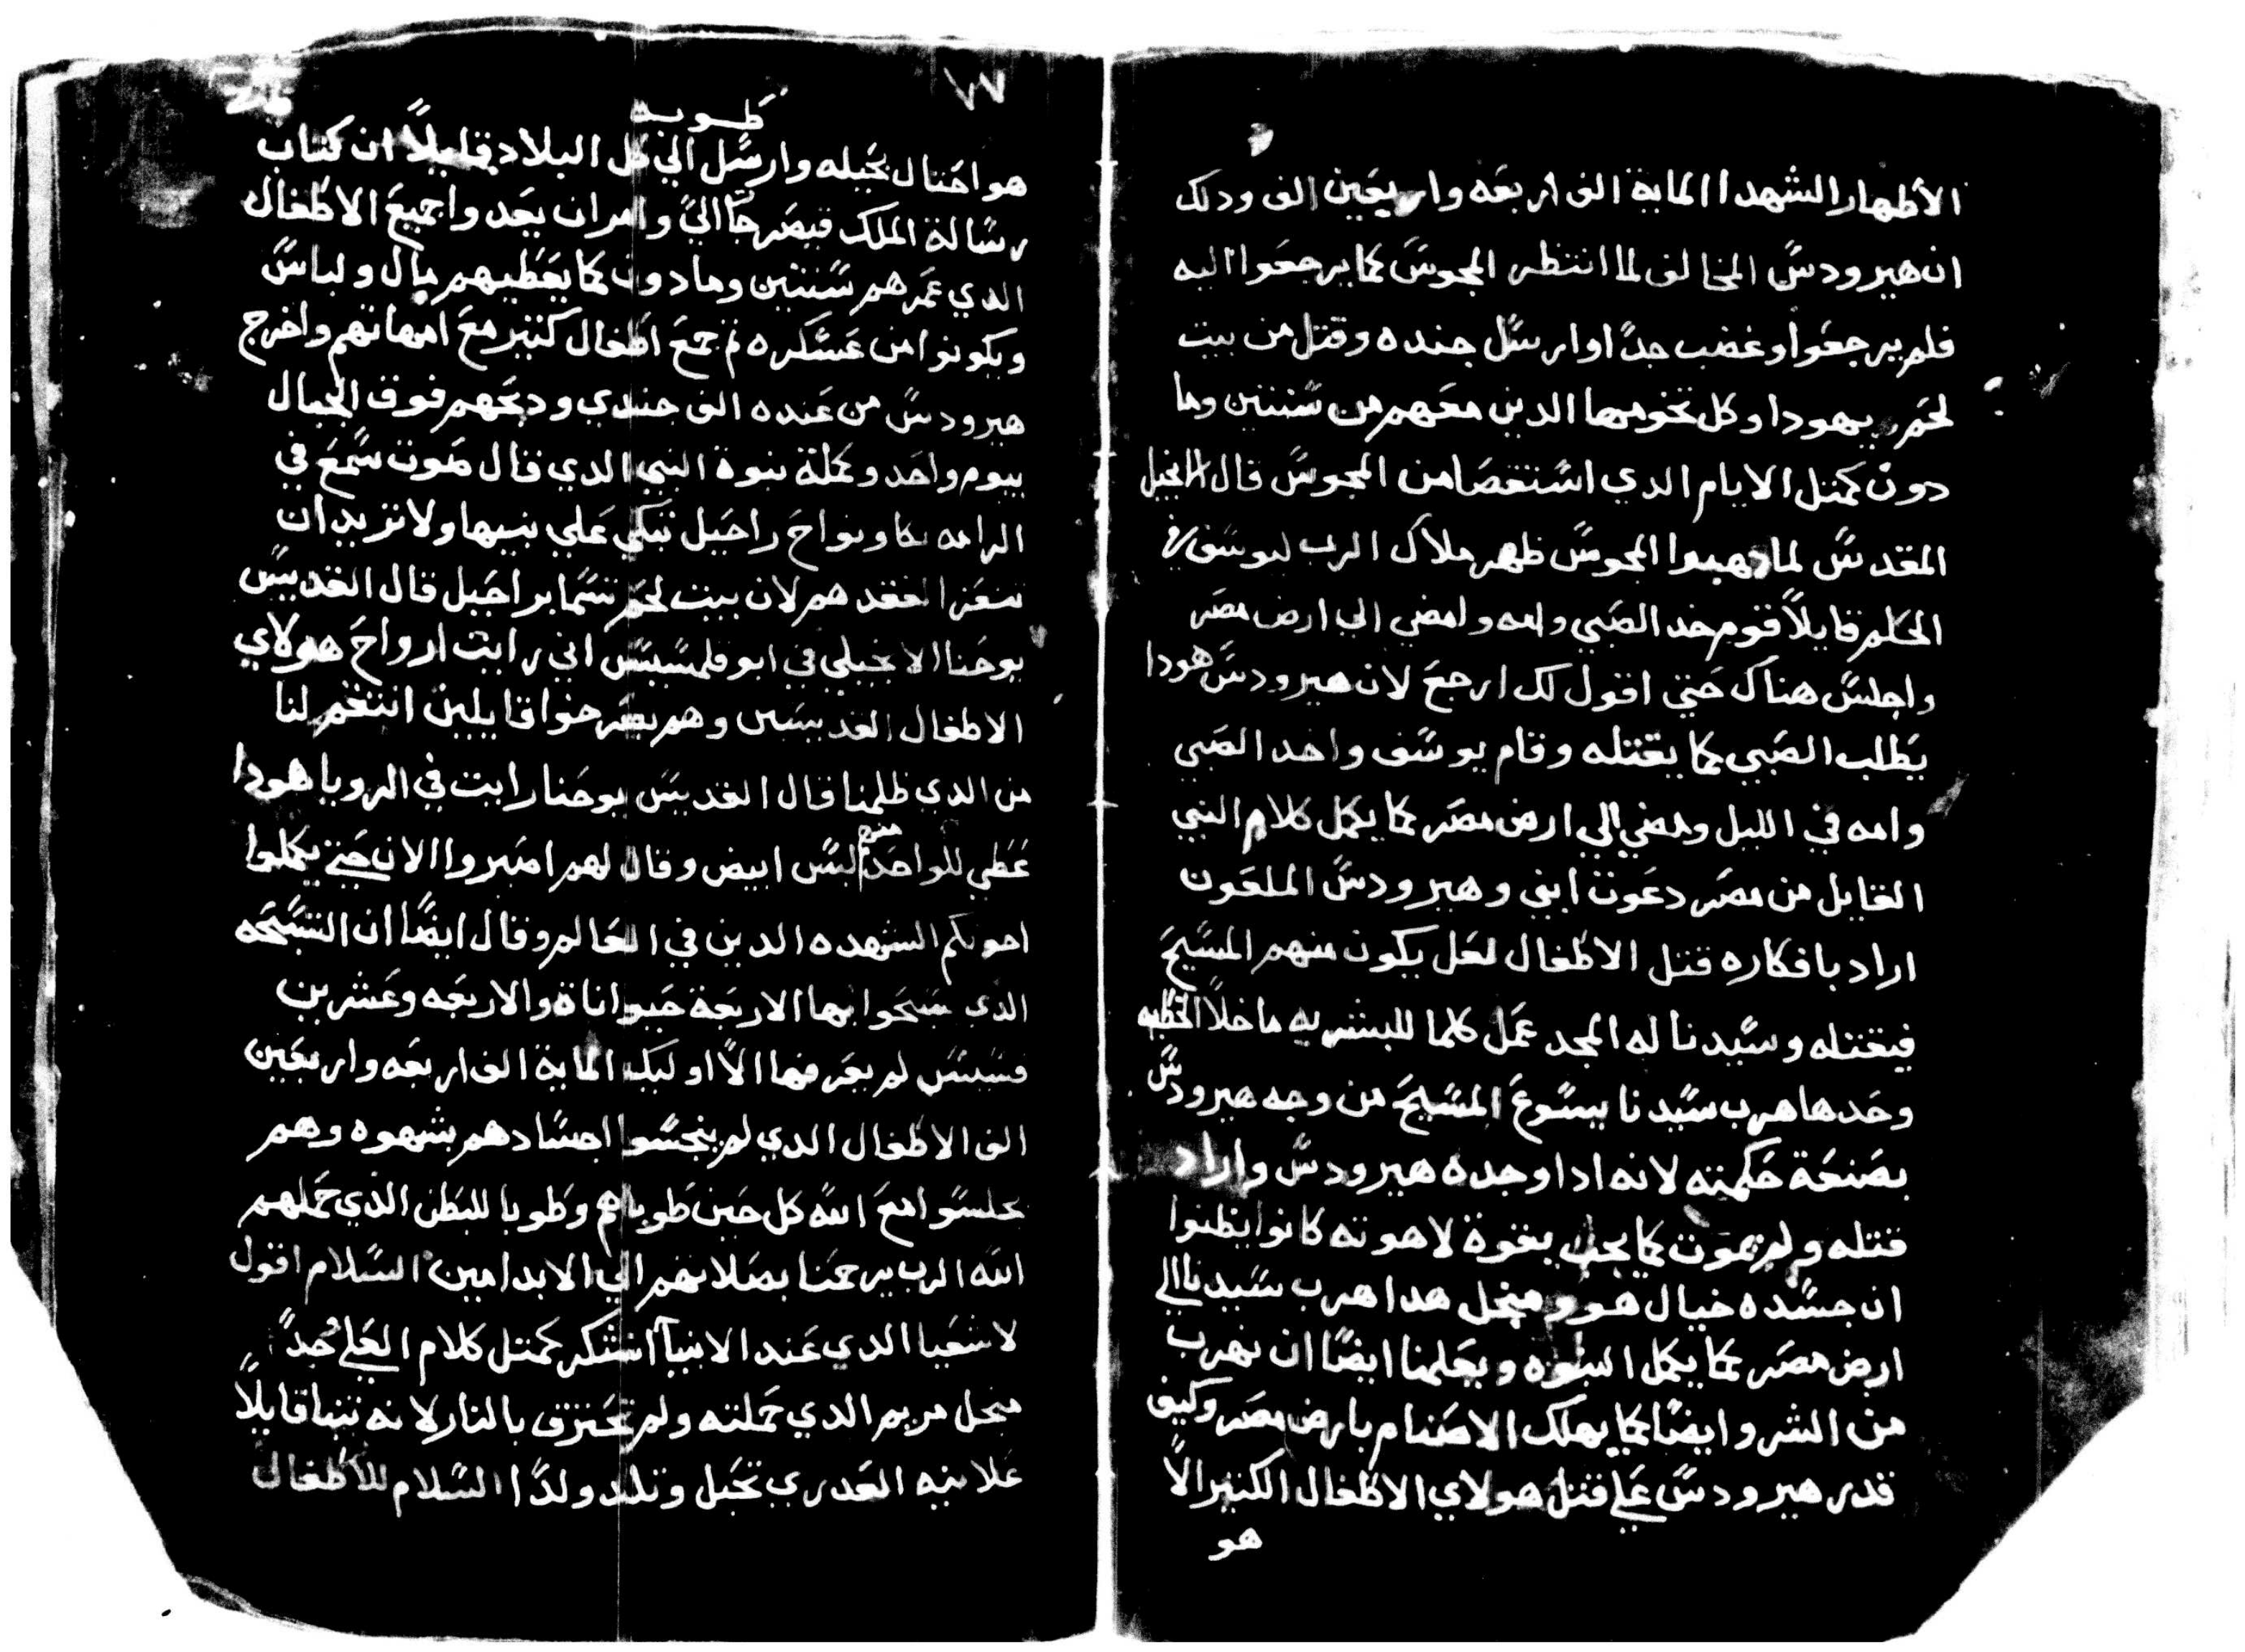 الأطهار الشهدا الماية الف اربعه واربعين الف ودلك
ان هيرودس المخالف لما انتظر المجوس كما يرجعوا اليه
فلم يرجعوا وغضب جدًا وارسل جنده وقتل من بيت
لحم يهودا وكل تخومها الدين معهم من سنتين وما
دون كمتل الايام الدي استقصا من المجوس قال الانجيل
المقدس لما دهبوا المجوس ظهر ملاك الرب ليوسف في
الحلم قايلاً قوم خد الصبي وامه وامضي الي ارض مصر
واجلس هناك حتي اقول لك ارجع لان هيرودس هودا
يطلب الصبي كما يقتله وقام يوسف واخد الصبي
وامه في الليل ومضي الي ارض مصر كما يكمل كلام النبي
القايل من مصر دعوت ابني وهيرودس الملعون
اراد بافكاره قتل الاطفال لعل يكون منهم المسيح
فيقتله وسيدنا له المجد عمل كلما للبشريه ماخلاً الخطيه
وحدها هرب سيدنا يسوع المسيح من وجه هيرودس
بصنعة حكمته لانه ادا وجده هيرودس واراد
قتله ولم يموت كما يجب بقوة لاهوته كانوا يظنوا
ان جسده خيال هو ومنجل هدا هرب سيدنا الي
ارض مصر كما يكمل النبوه ويعلمنا ايضًا ان نهرب
من الشر وايضًا كما يهلك الاصنام بارض مصر وكيف
قدر هيرودس علي قتل هولاي الاطفال الكتير الاً
هو
٧٧
طوبه
هو احتال بحيله وارسل الي كل البلاد قايلاً ان كتاب
رسالة الملك قيصر جاً اليً وامر ان يعدوا جميع الاطفال
الدي عمرهم سنتين وما دون كما يعطيهم مال ولباس
ويكونوا من عسكره تم جمع اطفال كتير مع امهاتهم واخرج
هيرودس من عنده الف جندي ودبحهم فوق الجبال
بيوم واحد وكملة نبوة النبي الدي قال صوت سمع في
الرامه بكا ونواح راحيل تبكي علي بنيها ولا تريد ان
تتعزا لفقدهم لان بيت لحم تسما براحيل قال القديس
يوحنا الانجيلي في ابوقلمسيس اني رايت ارواح هولاي
الاطفال القديسين وهم يصرخوا قايلين انتقم لنا
من الدي ظلمنا قال القديس يوحنا رايت في الرويا هودا
عطي للواحد منهم لبس ابيض وقال لهم اصبروا الان حتي يكملوا
اخوتكم الشهده الدين في العالم وقال ايضًا ان التسبحه
الذي سبحوا بها الاربعة حيواناة والاربعه وعشرين
قسيس لم يعرفها الاً اوليك الماية الف اربعه واربعين
الف الاطفال الدي لم ينجسوا اجسادهم بشهوه وهم
يجلسوا مع الله كل حين طوباهم وطوبا للبطن الذي حملهم
الله الرب يرحمنا بصلاتهم الي الابد امين السلام اقول
لاشعيا الدي عند الانبيآ اشتكر كمتل كلام العلي جدًا
منجل مريم الدي حملته ولم تحترق بالنار لانه تنبا قايلاً
علانيه العدري تحبل وتلد ولدًا السلام للاطفال